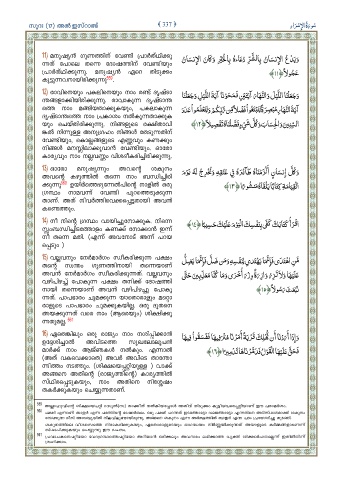 സൂറ (൧൭) അൽഇസ്റാഅ്
﴾ 337 ﴿
سُورَةُ الْإِسْرَاءِ
11) മനുഷ്യൻ ഗുണത്തിന് വേണ്ടി പ്രാർത്ഥിക്കു
ന്നത് പോലെ തന്നെ ദോഷത്തിന് വേണ്ടിയും
പ്രാർത്ഥിക്കുന്നു. മനുഷ്യൻ ഏറെ തിടുക്കം
കൂട്ടുന്നവനായിരിക്കുന്നു.
وَيَدْعُ الْإِنسَانُ بِالشَّرِّ دُعَاءَهُ بِالْخَيْرِ وَكَانَ الْإِنسَانُ
عَجُولًا ﴿١١﴾
12) രാവിനെയും പകലിനെയും നാം രണ്ട് ദൃഷ്ടാ
ന്തങ്ങളാക്കിയിരിക്കുന്നു. രാവാകുന്ന ദൃഷ്ടാന്ത
ത്തെ നാം മങ്ങിയതാക്കുകയും, പകലാകുന്ന
ദൃഷ്ടാന്തത്തെ നാം പ്രകാശം നൽകുന്നതാക്കുക
യും ചെയ്തിരിക്കുന്നു. നിങ്ങളുടെ രക്ഷിതാവി
ങ്കൽ നിന്നുള്ള അനുഗ്രഹം നിങ്ങൾ തേടുന്നതിന്
വേണ്ടിയും, കൊല്ലങ്ങളുടെ എണ്ണവും കണക്കും
നിങ്ങൾ മനസ്സിലാക്കുവാൻ വേണ്ടിയും. ഓരോ
കാര്യവും നാം നല്ലവണ്ണം വിശദീകരിച്ചിരിക്കുന്നു.
وَجَعَلْنَا اللَّيْلَ وَالنَّهَارَ آيَتَيْنِ فَمَحَوْنَا آيَةَ اللَّيْلِ وَجَعَلْنَا
آيَةَ النَّهَارِ مُبْصِرَةً لِّتَبْتَغُوا فَضْلًا مِّن رَّبِّكُمْ وَلِتَعْلَمُوا عَدَدَ
السِّنِينَ وَالْحِسَابَ وَكُلَّ شَيْءٍ فَصَّلْنَاهُ تَفْصِيلًا ﴿١٢﴾
13) ഓരോ മനുഷ്യന്നും അവന്റെ ശകുനം
അവന്റെ കഴുത്തിൽ തന്നെ നാം ബന്ധിച്ചിരി
ക്കുന്നു. ഉയിർത്തെഴുന്നേൽപിന്റെ നാളിൽ ഒരു
ഗ്രന്ഥം നാമവന്ന് വേണ്ടി പുറത്തെടുക്കുന്ന
താണ്. അത് നിവർത്തിവെക്കപ്പെട്ടതായി അവൻ
കണ്ടെത്തും.
وَكُلَّ إِنسَانٍ أَلْزَمْنَاهُ طَائِرَهُ فِي عُنُقِهِ وَنُخْرِجُ لَهُ يَوْمَ
الْقِيَامَةِ كِتَابًا يَلْقَاهُ مَنشُورًا ﴿١٣﴾
14) നീ നിന്റെ ഗ്രന്ഥം വായിച്ചുനോക്കുക. നിന്നെ
സ്സംബന്ധിച്ചിടത്തോളം കണക്ക് നോക്കാൻ ഇന്ന്
നീ തന്നെ മതി. (എന്ന് അവനോട് അന്ന് പറയ
പ്പെടും.)
اقْرَأْ كِتَابَكَ كَفَىٰ بِنَفْسِكَ الْيَوْمَ عَلَيْكَ حَسِيبًا ﴿١٤﴾
15) വല്ലവനും നേർമാർഗം സ്വീകരിക്കുന്ന പക്ഷം
തന്റെ സ്വന്തം ഗുണത്തിനായി തന്നെയാണ്
അവൻ നേർമാർഗം സ്വീകരിക്കുന്നത്. വല്ലവനും
വഴിപിഴച്ച് പോകുന്ന പക്ഷം തനിക്ക് ദോഷത്തി
നായി തന്നെയാണ് അവൻ വഴിപിഴച്ചു പോകു
ന്നത്. പാപഭാരം ചുമക്കുന്ന യാതൊരാളും മറ്റൊ
രാളുടെ പാപഭാരം ചുമക്കുകയില്ല. ഒരു ദൂതനെ
അയക്കുന്നത് വരെ നാം (ആരെയും) ശിക്ഷിക്കു
ന്നതുമല്ല.
مَّنِ اهْتَدَىٰ فَإِنَّمَا يَهْتَدِي لِنَفْسِهِ وَمَن ضَلَّ فَإِنَّمَا يَضِلُّ
عَلَيْهَا وَلَا تَزِرُ وَازِرَةٌ وِزْرَ أُخْرَىٰ وَمَا كُنَّا مُعَذِّبِينَ حَتَّىٰ
نَبْعَثَ رَسُولًا ﴿١٥﴾
16) ഏതെങ്കിലും ഒരു രാജ്യം നാം നശിപ്പിക്കാൻ
ഉദ്ദേശിച്ചാൽ അവിടത്തെ സുഖലോലുപൻ
മാർക്ക് നാം ആജ്ഞകൾ നൽകും. എന്നാൽ
(അത് വകവെക്കാതെ) അവർ അവിടെ താന്തോ
ന്നിത്തം നടത്തും. (ശിക്ഷയെപ്പറ്റിയുള്ള) വാക്ക്
അങ്ങനെ അതിന്റെ (രാജ്യത്തിന്റെ) കാര്യത്തിൽ
സ്ഥിരപ്പെടുകയും, നാം അതിനെ നിശ്ശേഷം
തകർക്കുകയും ചെയ്യുന്നതാണ്.
وَإِذَا أَرَدْنَا أَن نُّهْلِكَ قَرْيَةً أَمَرْنَا مُتْرَفِيهَا فَفَسَقُوا فِيهَا
فَحَقَّ عَلَيْهَا الْقَوْلُ فَدَمَّرْنَاهَا تَدْمِيرًا ﴿١٦﴾